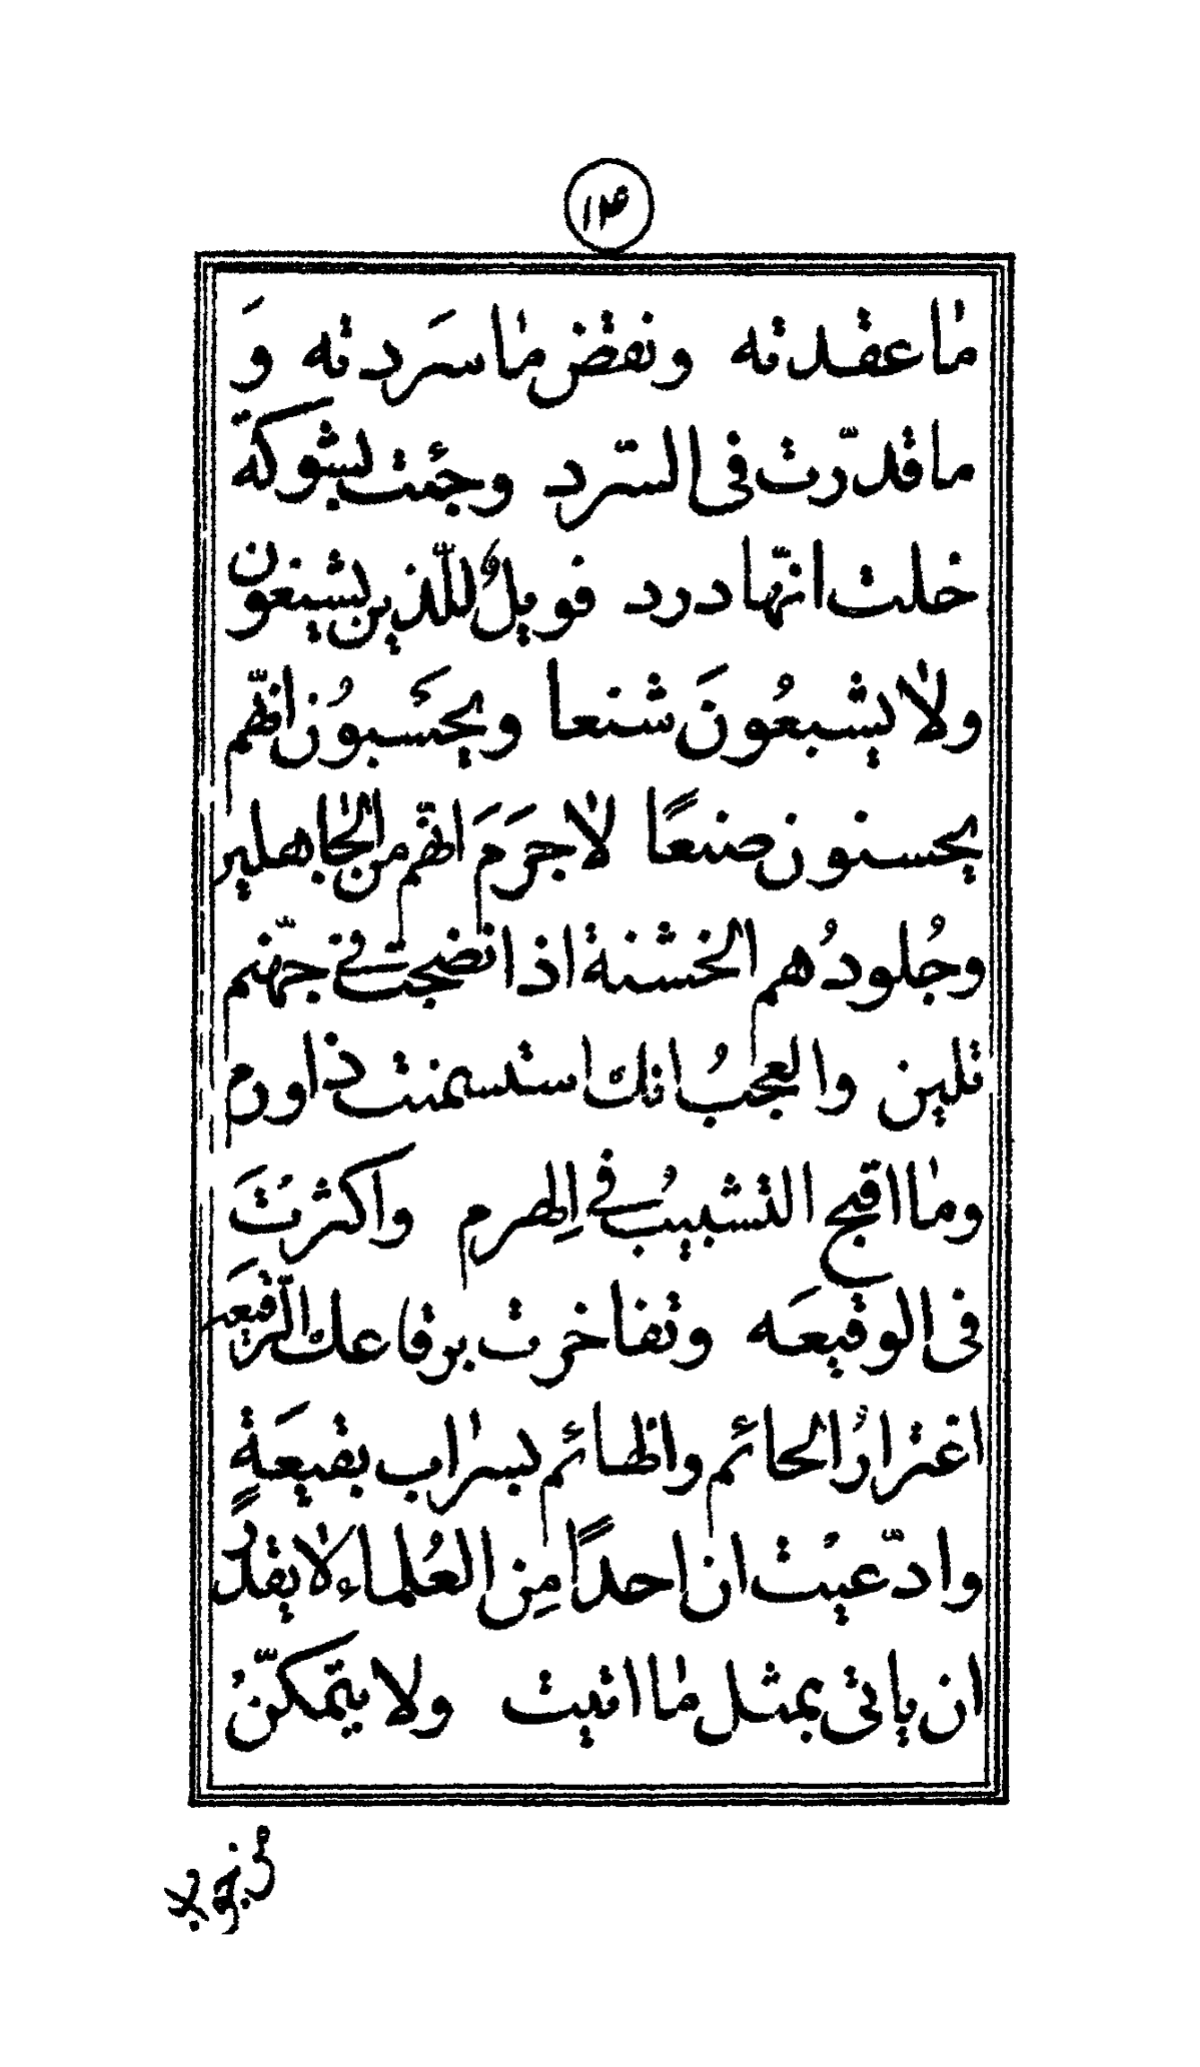 ۱۴
ما عقدته ونقض ما سَردته وَ
ما قدّرت فى السّرد وجئت بشوكة
خلت انّها درد فويلٌ للّذين يشنعون
ولا يشبعُونَ شنعا ويحسَبُون انّهم
يحسنون صنعًا لاجرَمَ انّهم من الجاهلين
وجُلودُهم الخشنة اذا نضجت فى جهّنم
تلين والعجبُ انك استسمنت ذا ورم
وما اقبح التشبيبُ فى الهرم واكثرتَ
فى الوقيعَه وتفاخرت برقاعك الرّقيعَه
اغترارُ الحائم والظائم بسراب بقيعَةٍ
وادّعيت ان احدًا مِن العُلماء لا يقدر
ان ياتى بمثل ما اتيت ولا يتمكّنُ